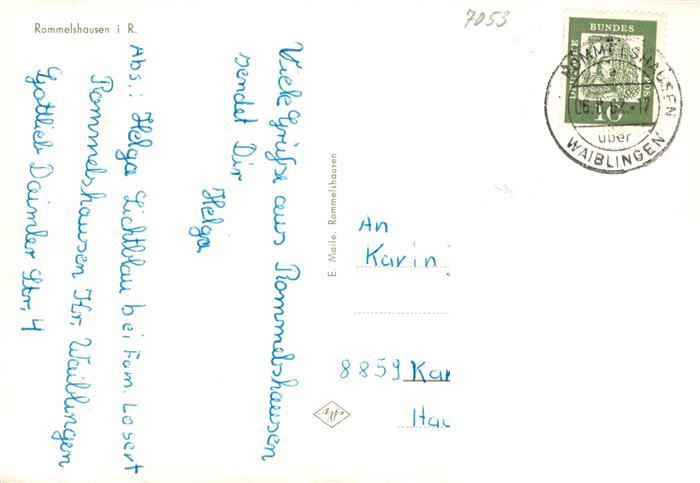 Rommelshausen i R.
7053
Viele Grüße aus Rommelshausen
sendet Dir
Helga
Abs.: Helga Lichtblau bei Fam. Losert
Rommelshausen Kr. Waiblingen
Gottlieb Daimler Str. 4
E. Maile, Rommelshausen
DEUTSCHE BUNDESPOST
10
ROMMELSHAUSEN
a
06.8.62.-17
über
WAIBLINGEN
An
Karin
8859 Kar
Hau